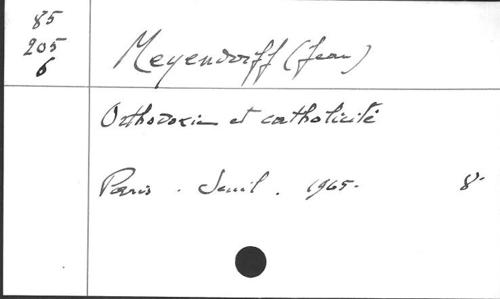 85
205
6
Meyendorff (Jean)
Orthodoxie et catholicité
Paris . Seuil . 1965-
8-